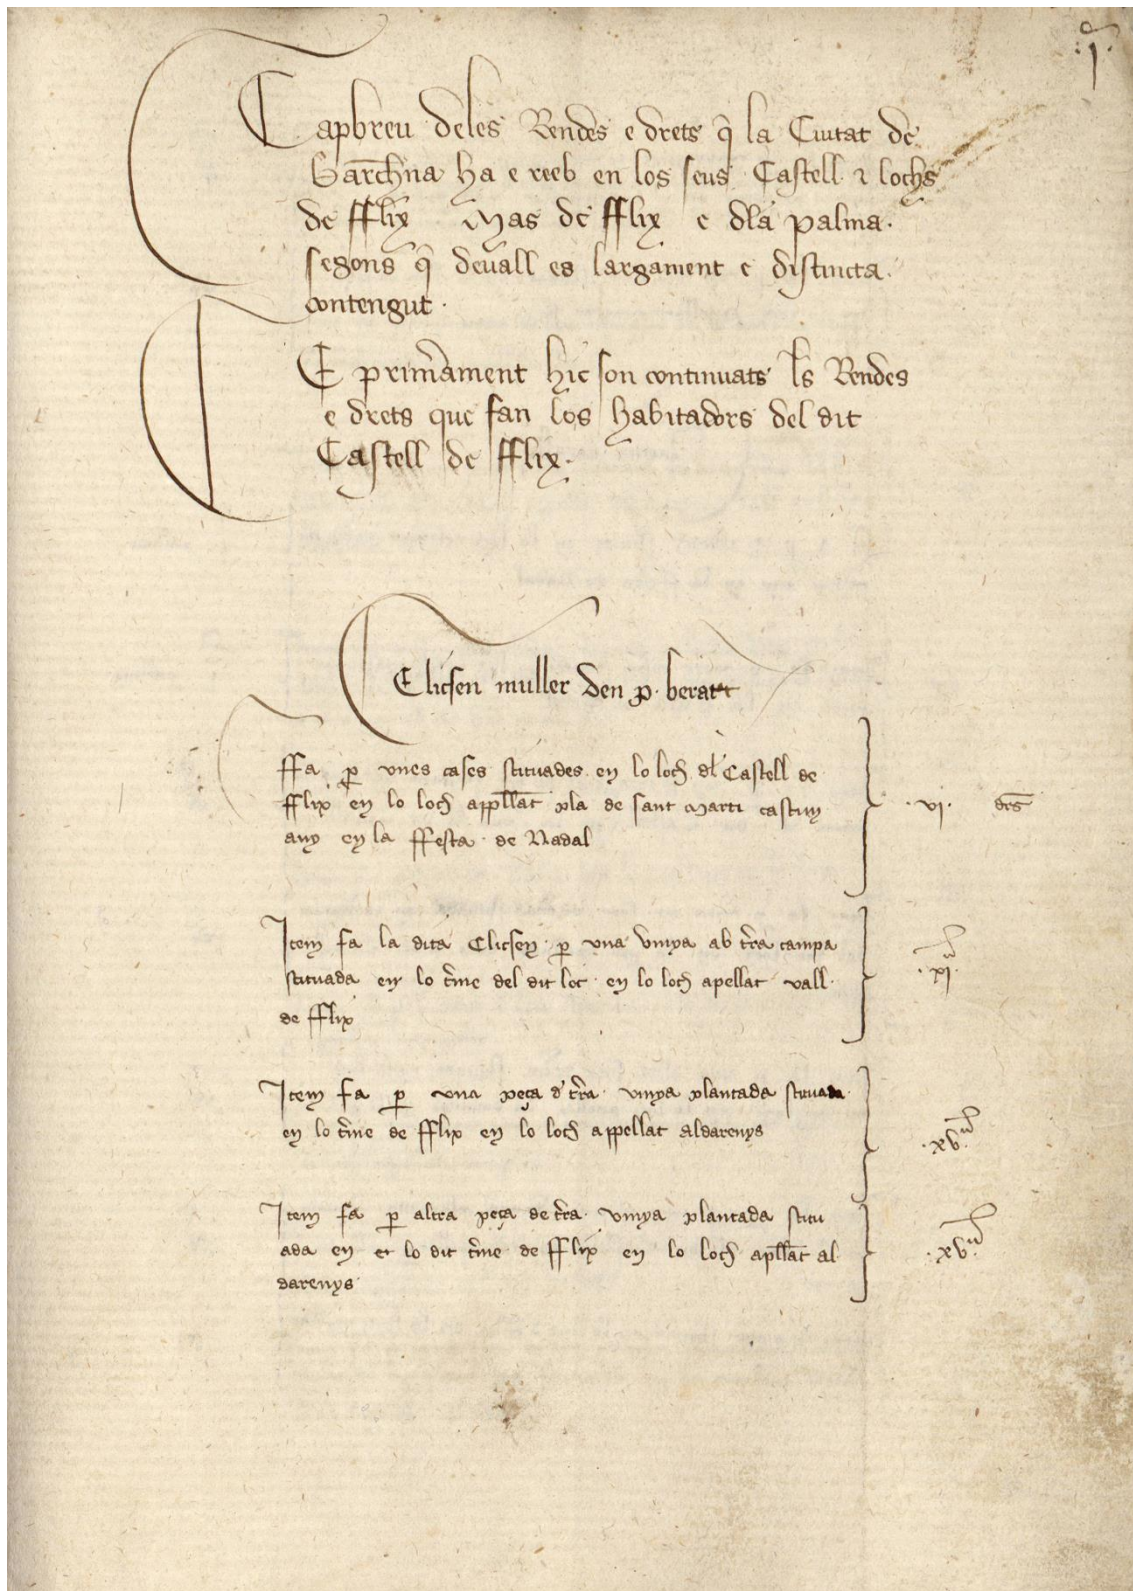 .j.
Capbreu deles Rendes e drets q̄ la Ciutat de
Barch̄na ha e reeb en los seus Castell ⁊ lochs
de fflix Mas de fflix e dla palma.
segons q̄ deuall es largament e distincta.
contengut.
E prim̄ament hic son continuats ls Rendes
e drets que fan los habitadors del dit
Castell de fflix.
Elicsen muller den p. berart
ffa ꝑ vnes cases scituades en lo loch dl Castell de
fflix en lo loch appll̄at pla de sant marti cascuny
any en la ffesta de Nadal
.vj. drs̄
Item fa la dita Elicsen ꝑ vna vinya ab tr̄ra campa
scituada en lo t̄me del dit loc en lo loch apellat vall.
de fflix
.xj.
Item fa ꝑ vna peça d tr̄ra vinya plantada scituada
en lo t̄me de fflix en lo loch appellat aldarenys
.xv.
Item fa ꝑ altra peça de tr̄ra vinya plantada scitu
ada en et lo dit t̄me de fflix en lo loch apll̄at al
darenys
.xv.